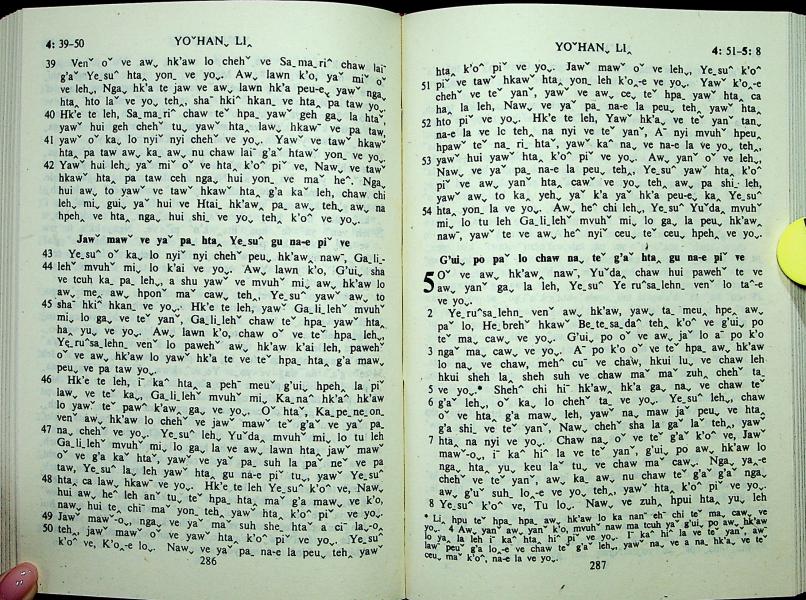 4: 39–50 YOˇHANˬ LIˬ
39 Venˇ oˇ ve awˬ hk'aw lo chehˇ ve Sa-ma-riˆ chaw lai
g'aˇ Ye-suˆ htaˬ yon ve yoˬ. Awˬ lawn k'o, yaˇ miˇ oˇ
ve lehˬ, Ngaˬ hk'a te jaw ve awˬ lawn hk'a peu-eˬ yawˇ ngaˬ
htaˬ hto laˇ ve yoˬ tehˬ, shaˉ hkiˆ hkan ve htaˬ pa taw yoˬ.
40 Hk'e te leh, Sa-ma-riˆ chaw teˇ hpaˬ yawˇ geh gaˬ la htaˇ,
yawˇ hui geh chehˇ tuˬ yawˇ htaˬ lawˬ hkawˇ ve pa taw,
41 yawˇ oˇ kaˬ lo nyiˇ nyi chehˇ ve yoˬ. Yawˇ ve tawˇ hkawˇ
htaˬ pa taw awˬ kaˬ awˬ nu chaw lai g'aˇ htawˇ yon ve yoˬ.
42 Yawˇ hui lehˬ yaˇ miˇ oˇ ve htaˬ k'oˆ piˇ ve, Naw ve tawˇ
hkawˇ htaˬ pa taw ceh ngaˬ hui yon ve maˇ heˆ. Ngaˬ
hui awˬ to yawˇ ve tawˇ hkawˇ htaˬ g'a kaˇ leh, chaw chi
lehˬ miˬ guiˬ yaˇ hui ve Htaiˬ hk'awˬ paˬ awˬ tehˬ awˬ na
hpehˬ ve htaˬ nga hui shiˬ ve yoˬ tehˬ k'oˆ ve yoˬ.
Jawˇ mawˇ ve yaˇ paˬ htaˬ Ye-suˆ gu na-e piˇ ve
43 Ye-suˆ oˇ kaˬ lo nyiˇ nyi chehˇ peuˬ hk'awˬ nawˉ, Ga-li-
44 lehˇ mvuhˇ miˬ lo k'ai ve yoˬ. Awˬ lawn k'o, G'uiˬ sha
ve tcuh kaˬ paˬ lehˬ, a shu yawˇ ve mvuhˇ miˬ awˬ hk'aw lo
awˬ meˬ awˬ hponˇ maˇ cawˬ tehˬ, Ye-suˆ yawˇ awˬ to
45 shaˉ hkiˆ hkanˬ ve yoˬ. Hk'e te leh, yawˇ Ga-li-lehˇ mvuhˇ
miˬ lo gaˬ ve teˇ yanˇ, Ga-li-lehˇ chaw teˇ hpaˬ yawˇ htaˬ
haˬ yuˬ ve yoˬ. Awˬ lawn k'o, chaw oˇ ve teˇ hpaˬ lehˬ,
Ye-ru-sa-lehnˬ venˇ lo pawehˇ awˬ hk'aw k'ai leh, pawehˇ
oˇ ve awˬ hk'aw lo yawˇ hk'a te ve teˇ hpaˬ htaˬ g'a mawˬ
peuˬ ve pa taw yoˬ.
46 Hk'e te leh, iˉ kaˆ htaˬ a pehˉ meuˇ g'uiˬ hpehˬ la piˇ
lawˇ ve teˇ kaˬ, Ga-li-lehˇ mvuhˇ miˬ Ka-naˆ hk'aˆ hk'aw
lo yawˇ teˇ pawˇ k'awˬ gaˬ ve yoˬ. Oˇ htaˇ, Ka-pe-ne-on
venˇ awˬ hk'aw lo chehˇ ve jawˇ mawˇ teˇ g'aˇ ve yaˇ paˬ
47 naˬ chehˇ ve yoˬ. Ye-suˆ leh Yuˇdaˬ mvuhˇ miˬ lo tu leh
Ga-li-lehˇ mvuhˇ miˬ lo gaˬ la ve awˬ lawn htaˬ jawˇ mawˇ
oˇ ve g'a kaˇ htaˇ, yawˇ ve yaˇ paˬ suh la paˉ neˇ ve pa
taw, Ye-suˆ laˬ leh yawˇ htaˬ gu na-e piˇ tuˬ, yawˇ Ye-suˆ
48 htaˬ ca lawˬ hkawˇ ve yoˬ. Hk'e te leh Ye-suˆ k'oˆ ve, Nawˬ
hui awˬ heˇ leh anˇ tuˬ teˇ hpaˬ htaˬ maˇ g'a mawˬ ve k'o,
nawˬ hui teˬ chiˆ maˇ yon tehˬ yawˇ htaˬ k'oˆ piˇ ve yoˬ.
49 Jawˇ mawˇ-oˬ, ngaˬ ve yaˇ maˇ suh sheˬ htaˇ a ciˇ la-oˬ
50 tehˬ, jawˇ mawˇ oˇ ve yawˇ htaˬ k'oˆ piˇ ve yoˬ. Ye-suˆ
k'oˆ ve, K'oˬ-e lo-. Nawˬ ve yaˇ paˬ na-e la peuˬ tehˬ yawˇ
286
YOˇHANˬ LIˬ 4: 51–5: 8
htaˬ k'oˆ piˇ ve yoˬ. Jawˇ mawˇ oˇ ve lehˬ, Ye-suˆ k'oˆ
51 piˇ ve tawˇ hkawˇ htaˬ yon leh k'oˬ-e ve yoˬ. Yawˇ k'oˬ-e
chehˇ ve teˇ yanˇ, yawˇ ve awˬ ceˬ teˇ hpaˬ yawˇ htaˬ ca
haˬ la leh, Nawˬ ve yaˇ paˬ na-e la peuˬ tehˬ yawˇ htaˬ
52 hto piˇ ve yoˬ. Hk'e te leh, Yawˇ hk'aˬ ve teˇ yanˇ tanˬ
na-e la ve le tehˬ na nyi ve teˇ yanˇ, Aˉ nyi mvuhˇ hpeuˬ
hpawˇ teˇ na-riˬ htaˇ, yawˇ kaˆ naˬ ve na-e la ve yo tehˬ,
53 yawˇ hui yawˇ htaˬ k'oˆ piˇ ve yoˬ. Awˬ yanˇ oˇ ve lehˬ,
Nawˬ ve yaˇ paˬ na-e la peuˬ tehˬ, Ye-suˆ yawˇ htaˬ k'oˆ
piˇ ve awˬ yanˇ htaˬ cawˇ ve yoˬ tehˬ awˬ pa shiˬ leh,
yawˇ awˬ to kaˬ yehˬ yaˇ k'a yaˇ hk'a peu-eˬ kaˬ Ye-suˆ
54 htaˬ yon la ve yoˬ. Awˬ heˆ chi lehˬ, Ye-suˆ Yuˇdaˬ mvuhˇ
miˬ lo tu leh Ga-li-lehˇ mvuhˇ miˬ lo gaˬ la peuˬ hk'awˬ
nawˉ, yawˇ te ve awˬ heˇ nyi ceuˬ teˇ ceuˬ hpehˬ ve yoˬ.
G'uiˬ po paˇ lo chaw naˬ teˇ g'aˇ htaˬ gu na-e piˇ ve
5 Oˇ ve awˬ hk'awˬ nawˉ, Yuˇdaˬ chaw hui pawehˇ te ve
awˬ yanˇ gaˬ la leh, Ye-suˆ Ye-ruˆsa-lehnˬ venˇ lo taˆ-e
ve yoˬ.
2 Ye-ruˆsa-lehnˬ venˇ awˬ hk'aw, yawˬ taˬ meuˬ hpeˬ awˬ
paˇ lo, He-brehˇ hkawˇ Be-te-sa-daˆ tehˬ k'oˆ ve g'uiˬ po
teˇ maˬ cawˬ ve yoˬ. G'uiˬ po oˇ ve awˬ jaˇ lo aˉ po k'o
3 ngaˇ maˬ cawˬ ve yoˬ. Aˉ po k'o oˇ ve teˇ hpaˬ awˬ hk'aw
lo naˬ ve chaw, mehˆ cuˉ ve chaw, hkui luˬ ve chaw leh
hkui sheh laˬ sheh suh ve chaw maˇ maˇ zuhˬ chehˇ ta
5 ve yoˬ.* Shehˆ chi hiˉ hk'awˬ hk'a ga naˬ ve chaw teˇ
6 g'aˇ lehˬ, oˇ kaˬ lo chehˇ taˬ ve yoˬ. Ye-suˆ lehˬ, chaw
oˇ ve htaˬ g'a mawˬ leh, yawˇ naˬ maw jaˇ peuˬ ve htaˬ
g'a shiˬ ve teˇ yanˇ, Nawˬ chehˇ sha la gaˇ la tehˬ, yawˇ
7 htaˬ na nyi ve yoˬ. Chaw naˬ oˇ ve teˇ g'aˇ k'oˆ ve, Jawˇ
mawˇ-oˬ, iˉ kaˆ hiˆ la ve teˇ yanˇ, g'uiˬ po awˬ hk'aw lo
nga htaˬ yuˬ keu laˇ tuˬ ve chaw maˇ cawˬ. Ngaˬ yaˬ-e
chehˇ ve teˇ yanˇ, awˬ kaˬ awˬ nu chaw teˇ g'aˇ g'aˇ ngaˬ
awˬ g'uˇ suhˬ lo-e ve yoˬ tehˬ, yawˇ htaˬ k'oˆ piˇ ve yoˬ.
8 Ye-suˆ k'oˆ ve, Tu lo-. Nawˬ ve zuhˬ hpui htaˬ yuˬ leh
* Liˬ hpu teˇ hpaˬ hpaˬ awˬ hk'aw lo ka nanˆ ehˉ chi teˇ maˬ cawˬ ve
yoˬ. 4 Awˬ yanˇ awˬ yanˇ k'o mvuhˇ naw ma tcuh yaˇ g'uiˬ po awˬ hk'aw
lo yaˬ la leh iˉ kaˆ htaˬ hiˆ piˇ ve yoˬ. Iˉ kaˆ hiˆ la ve teˇ yanˇ, awˉ
lawˇ peuˇ g'a lo-e ve chaw teˇ g'aˇ lehˬ, yawˇ naˬ ve a na hk'aˬ ve teˇ
ceuˬ maˇ k'oˆ, na-e la ve yoˬ.
287